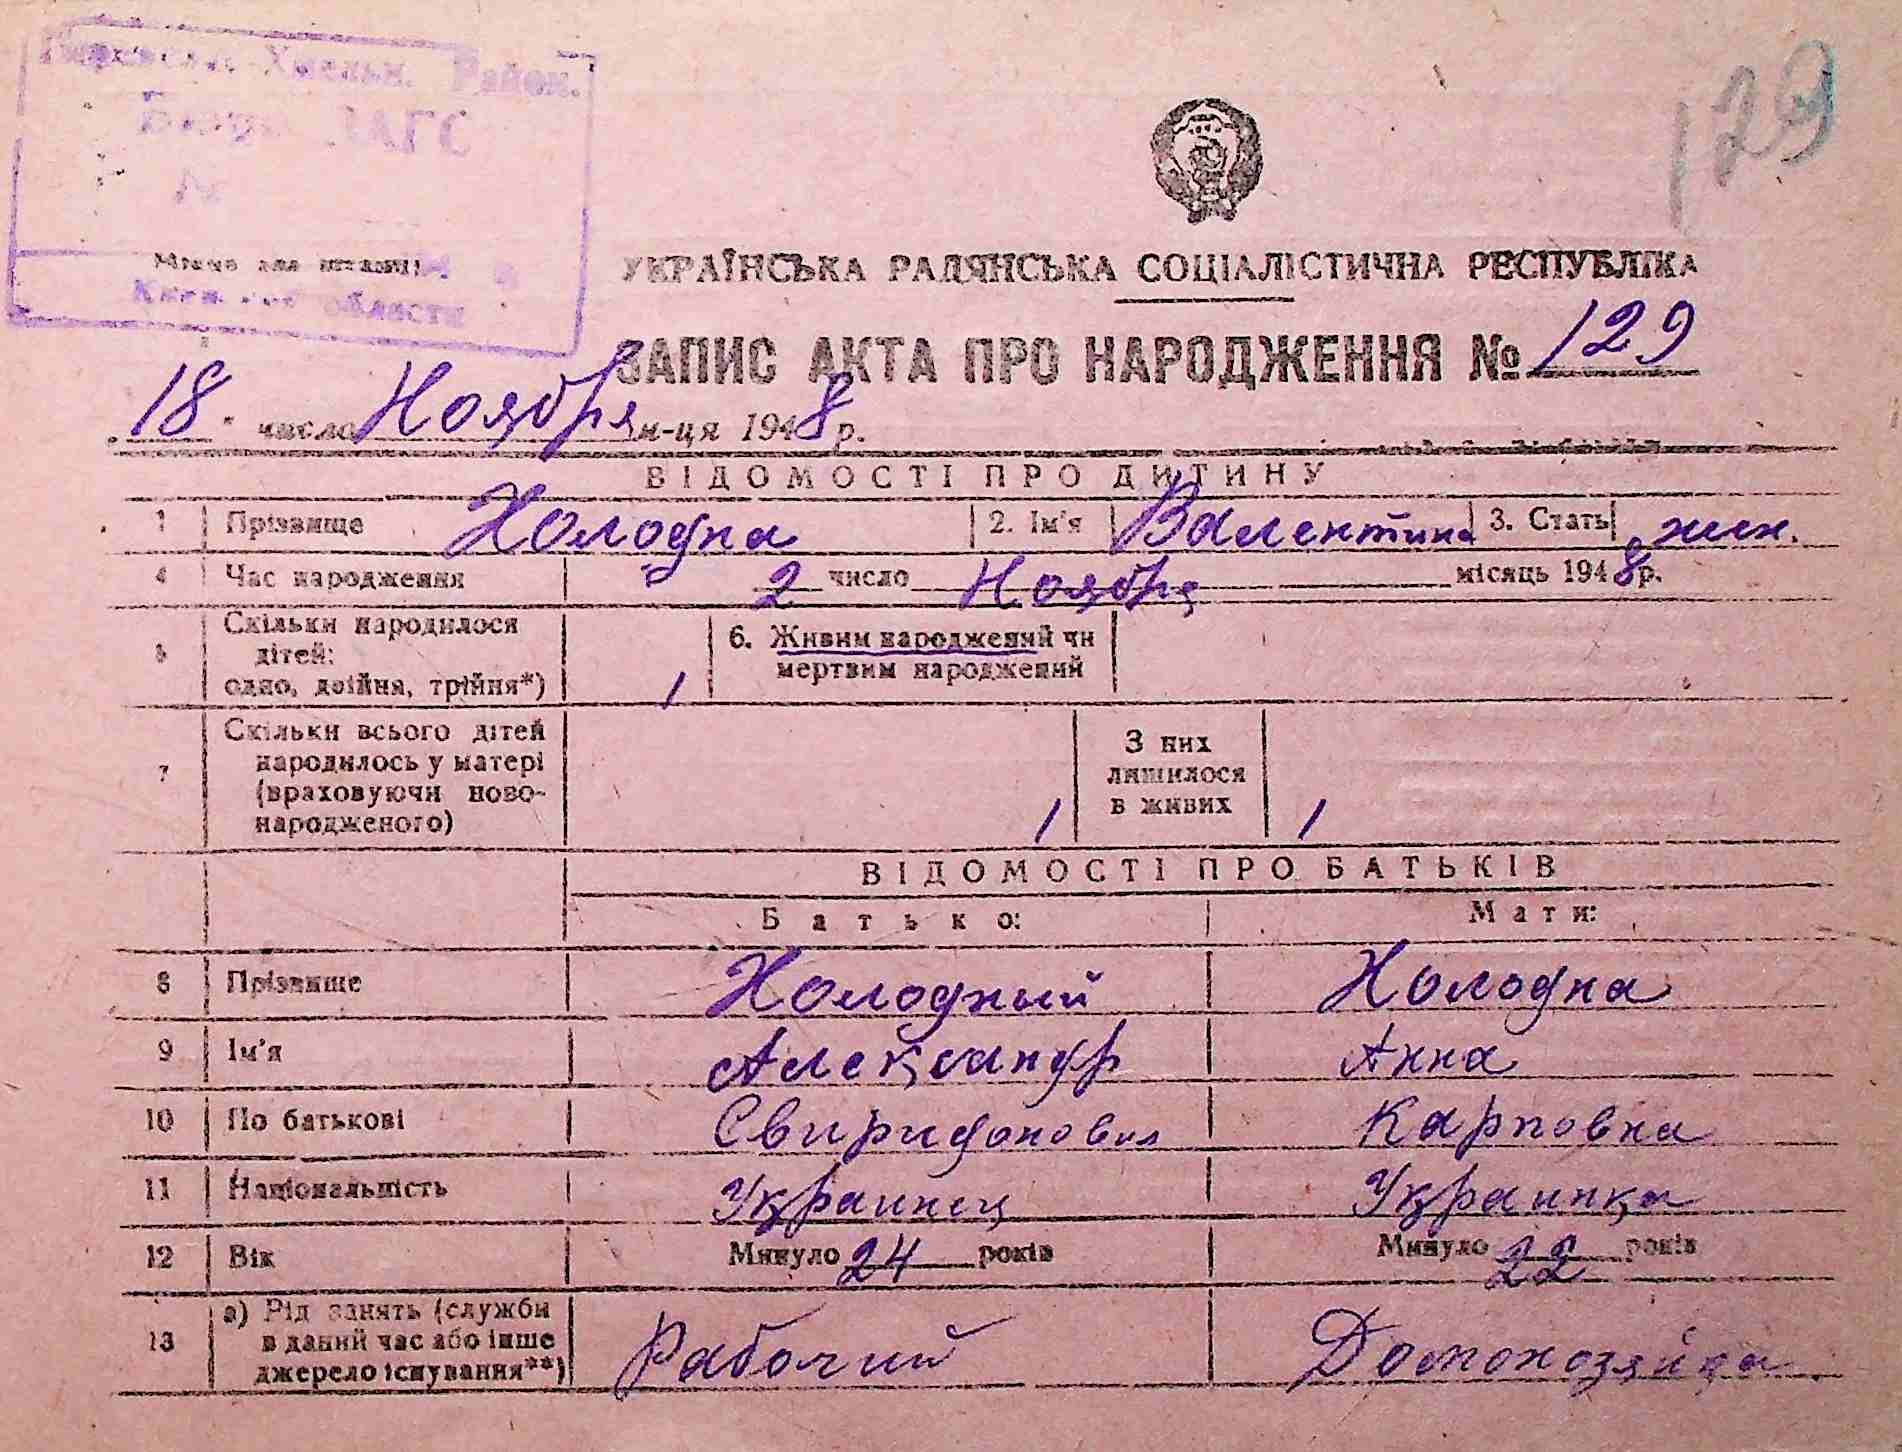 Хмельн. Район.
Бюро ЗАГС
№
129
Місце для штампу
области
УКРАЇНСЬКА РАДЯНСЬКА СОЦІАЛІСТИЧНА РЕСПУБЛІКА
ЗАПИС АКТА ПРО НАРОДЖЕННЯ № 129
18 число Ноября м-ця 1948 р.
ВІДОМОСТІ ПРО ДИТИНУ
1 Прізвище Холодна 2. Ім'я Валентина 3. Стать жен.
4 Час народження 2 число Ноября місяць 1948 р.
5 Скільки народилося дітей: одно, двійня, трійня*) 1 6. Живим народжений чи мертвим народжений
7 Скільки всього дітей народилось у матері (враховуючи ново-народженого) 1 З них лишилося в живих 1
ВІДОМОСТІ ПРО БАТЬКІВ
Батько: Мати:
8 Прізвище Холодный Холодна
9 Ім'я Александр Анна
10 По батькові Свиридонович Карповна
11 Національність Украинец Украинка
12 Вік Минуло 24 років Минуло 22 років
13 а) Рід занять (служби в даний час або інше джерело існування**) Рабочий Домохозяйка